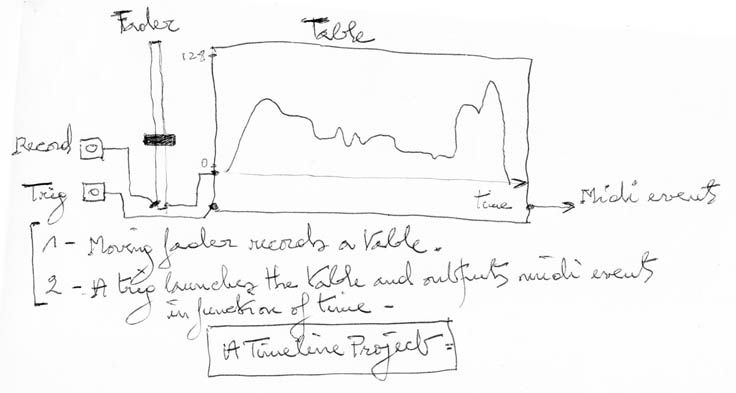 Fader
Table
128
Record
0
Trig
time
Midi events
1 - Moving fader records a table.
2 - A trig launches the table and outputs midi events
in function of time -
A Timeline Project =